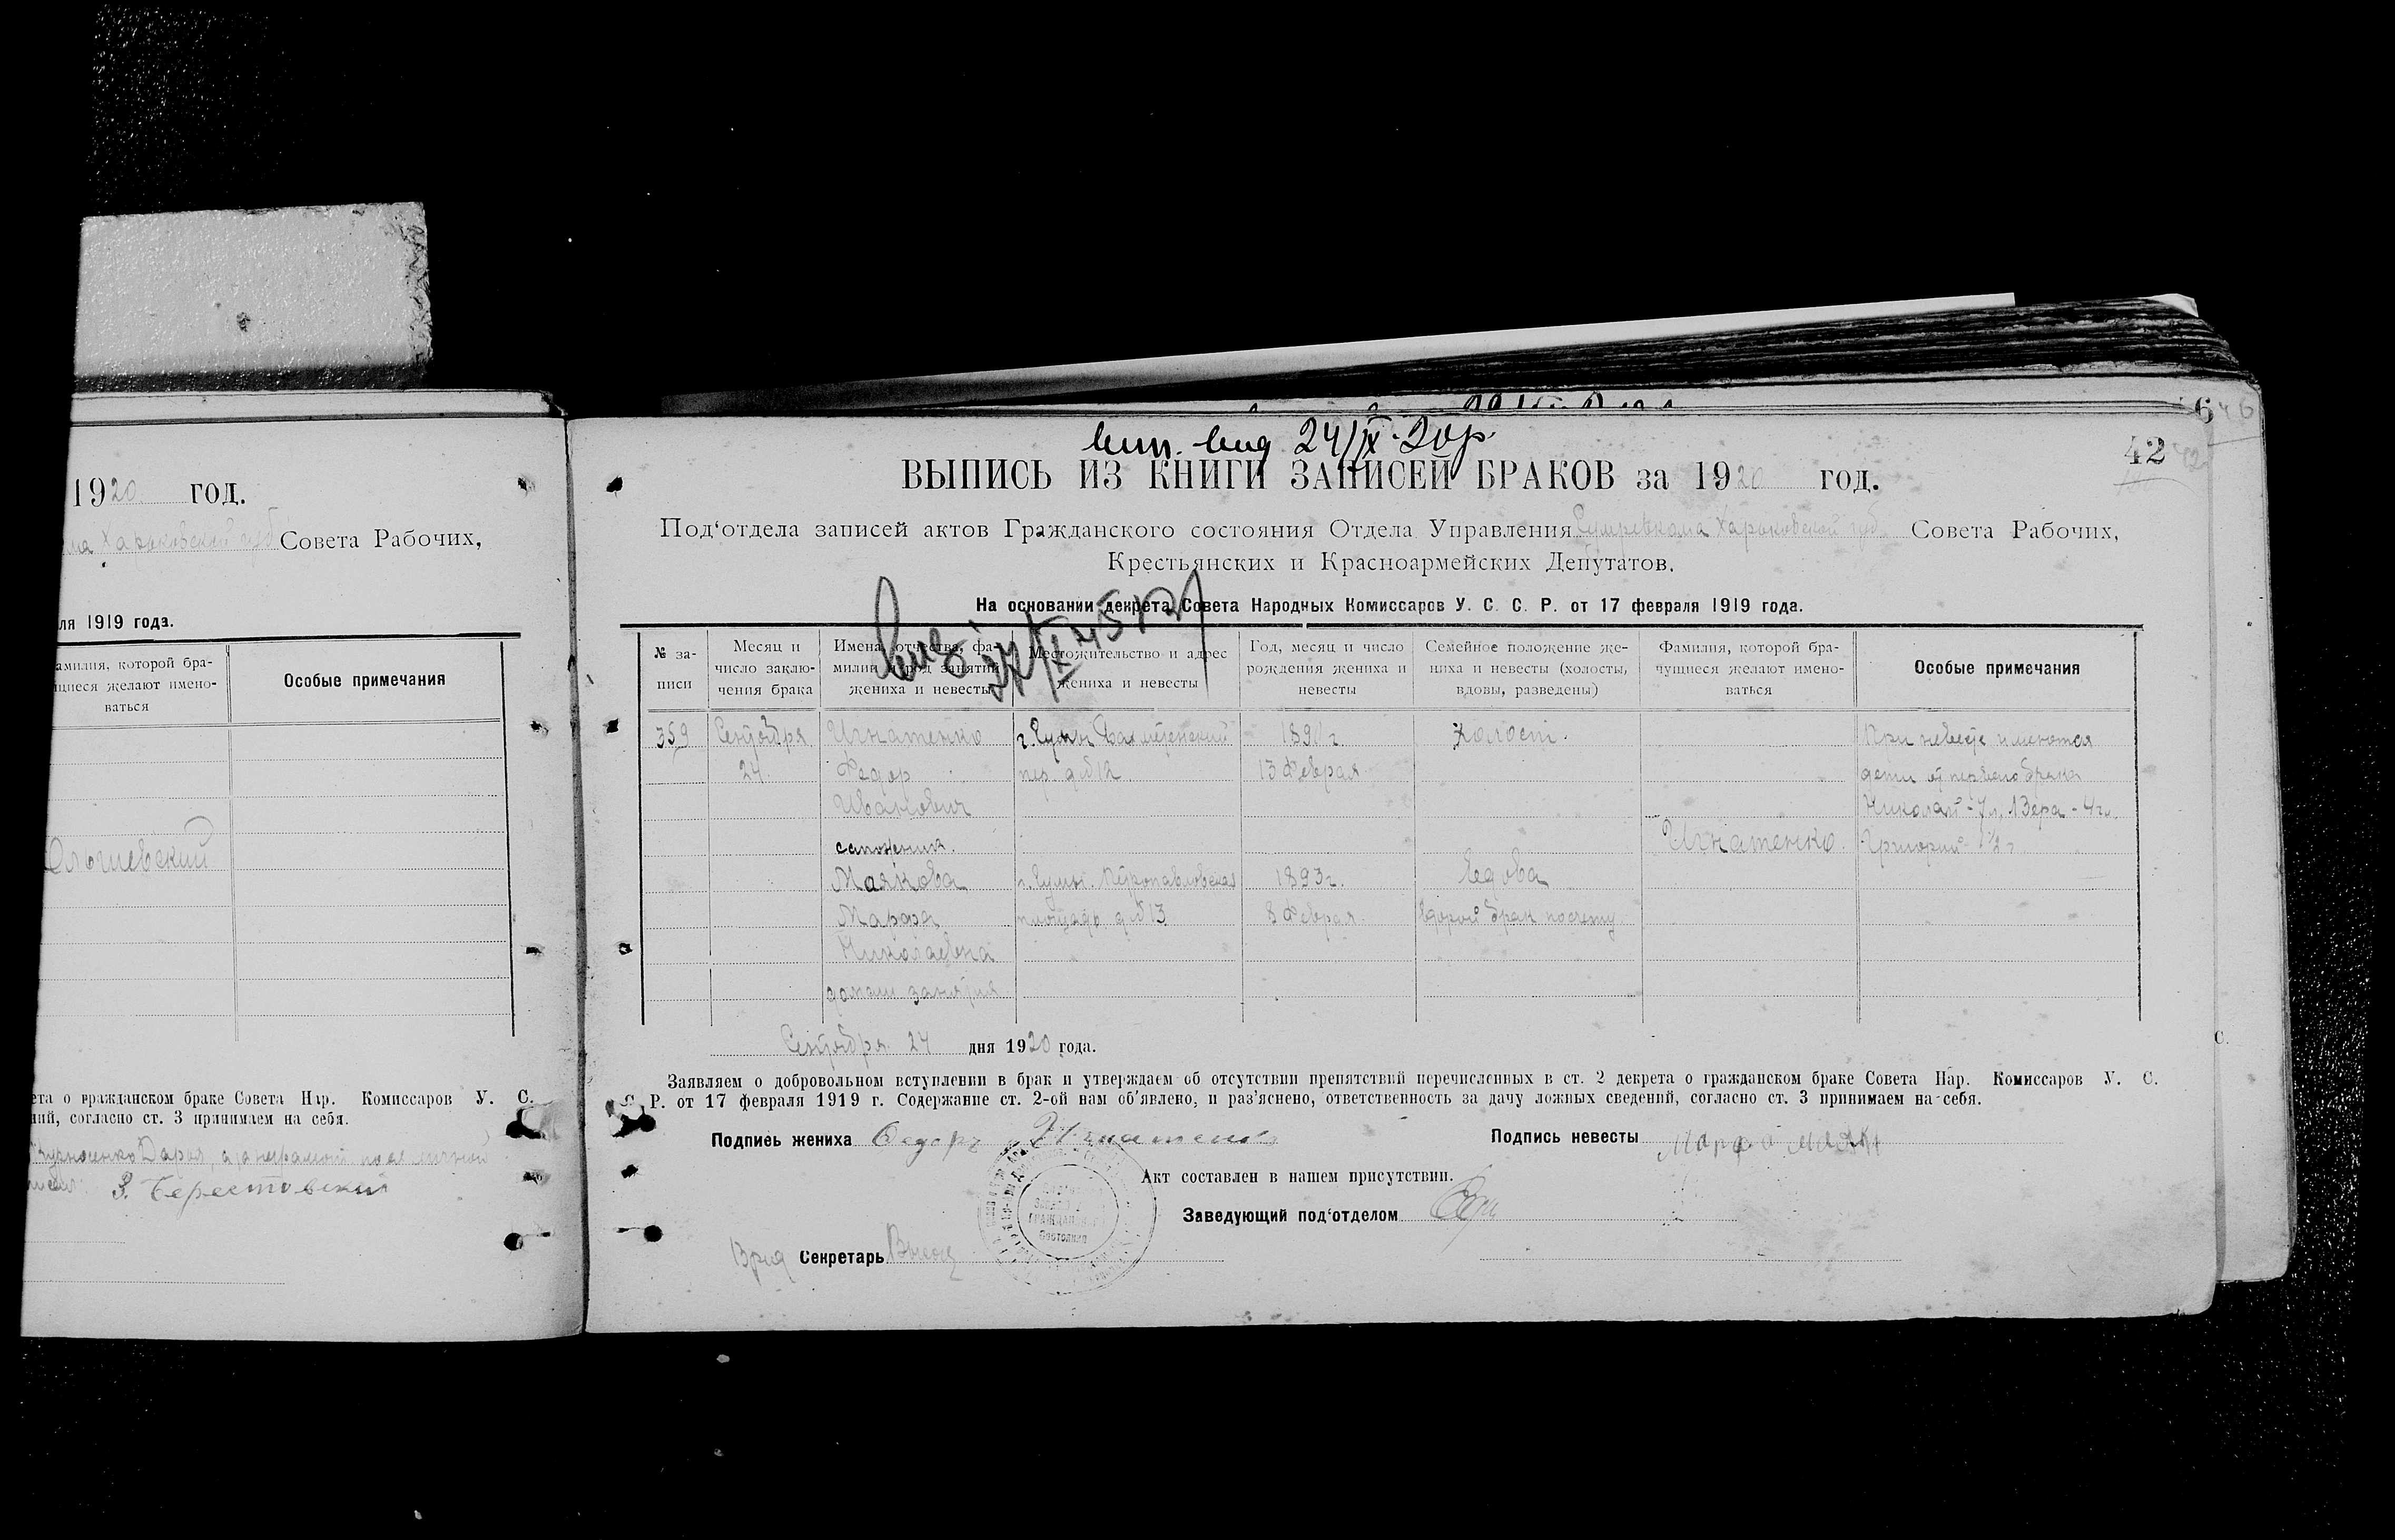 1920 год.
Харьковской губ Совета Рабочих,
ля 1919 года.
амилия, которой бра-
щиеся желают имено-
ваться
Особые примечания
Ольгиевский
ета о гражданском браке Совета Нар. Комиссаров У. С.
ний, согласно ст. 3 принимаем на себя.
Дарья, а за неграмотн
З. Берестовский
6
46
вид 24/IX-20р.
42
ВЫПИСЬ ИЗ КНИГИ ЗАПИСЕЙ БРАКОВ за 1920 год.
Под‘отдела записей актов Гражданского состояния Отдела Управления Сумревкома Харьковской губ. Совета Рабочих,
Крестьянских и Красноармейских Депутатов.
На основании декрета Совета Народных Комиссаров У. С. С. Р. от 17 февраля 1919 года.
№ за-
писи
Месяц и
число заклю-
чения брака
Имена, отчества, фа-
милии и род занятий
жениха и невесты
Местожительство и адрес
жениха и невесты
Год, месяц и число
рождения жениха и
невесты
Семейное положение же-
ниха и невесты (холосты,
вдовы, разведены)
Фамилия, которой бра-
чущиеся желают имено-
ваться
Особые примечания
359 Сентября Игнатенко г. Сумы 1891 г. Холост. При невесте имеются
24. Федор пер. д №12 13 Февраля дети от первого брака
Иванович Николай - 7 л. Вера - 4 г.
сапожник. Игнатенко. Григорий 1 1/2 г
Маякова г. Сумы. Петропавловская 1893 г. Вдова
Марфа площадь д №13 8 Февраля. второй брак по счету
Николаевна
домаш занятия
Сентября 24 дня 1920 года.
Заявляем о добровольном вступлении в брак и утверждаем об отсутствии препятствий перечисленных в ст. 2 декрета о гражданском браке Совета Нар. Комиссаров У. С.
С. Р. от 17 февраля 1919 г. Содержание ст. 2-ой нам об’явлено, и раз’яснено, ответственность за дачу ложных сведений, согласно ст. 3 принимаем на себя.
Подпись жениха Федоръ Игнатенко Подпись невесты Марфа Маяк
Акт составлен в нашем присутствии.
Заведующий под‘отделом
Врид Секретарь
Гражданск
Состояния
С.